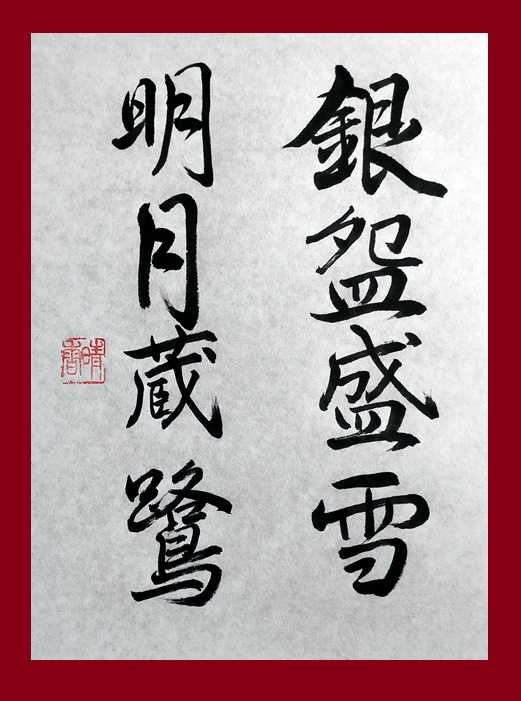 銀盌盛雪
明月蔵鷺